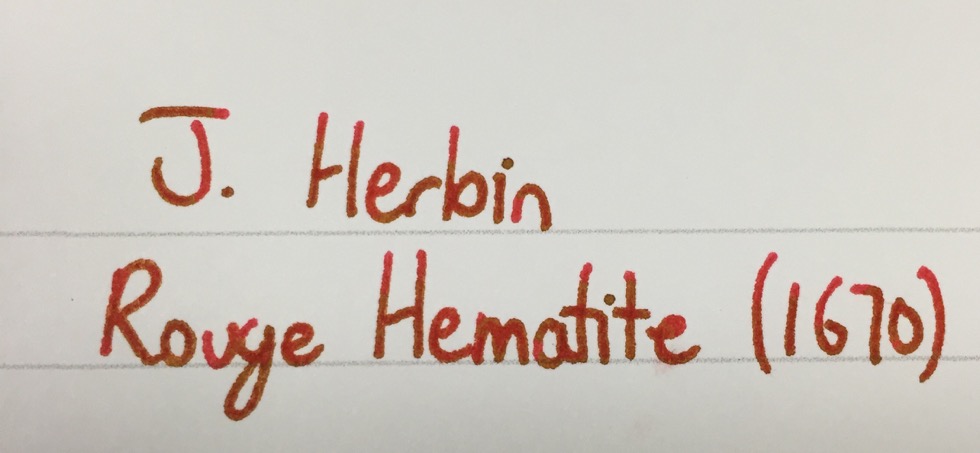 J. Herbin
Rouge Hematite (1670)